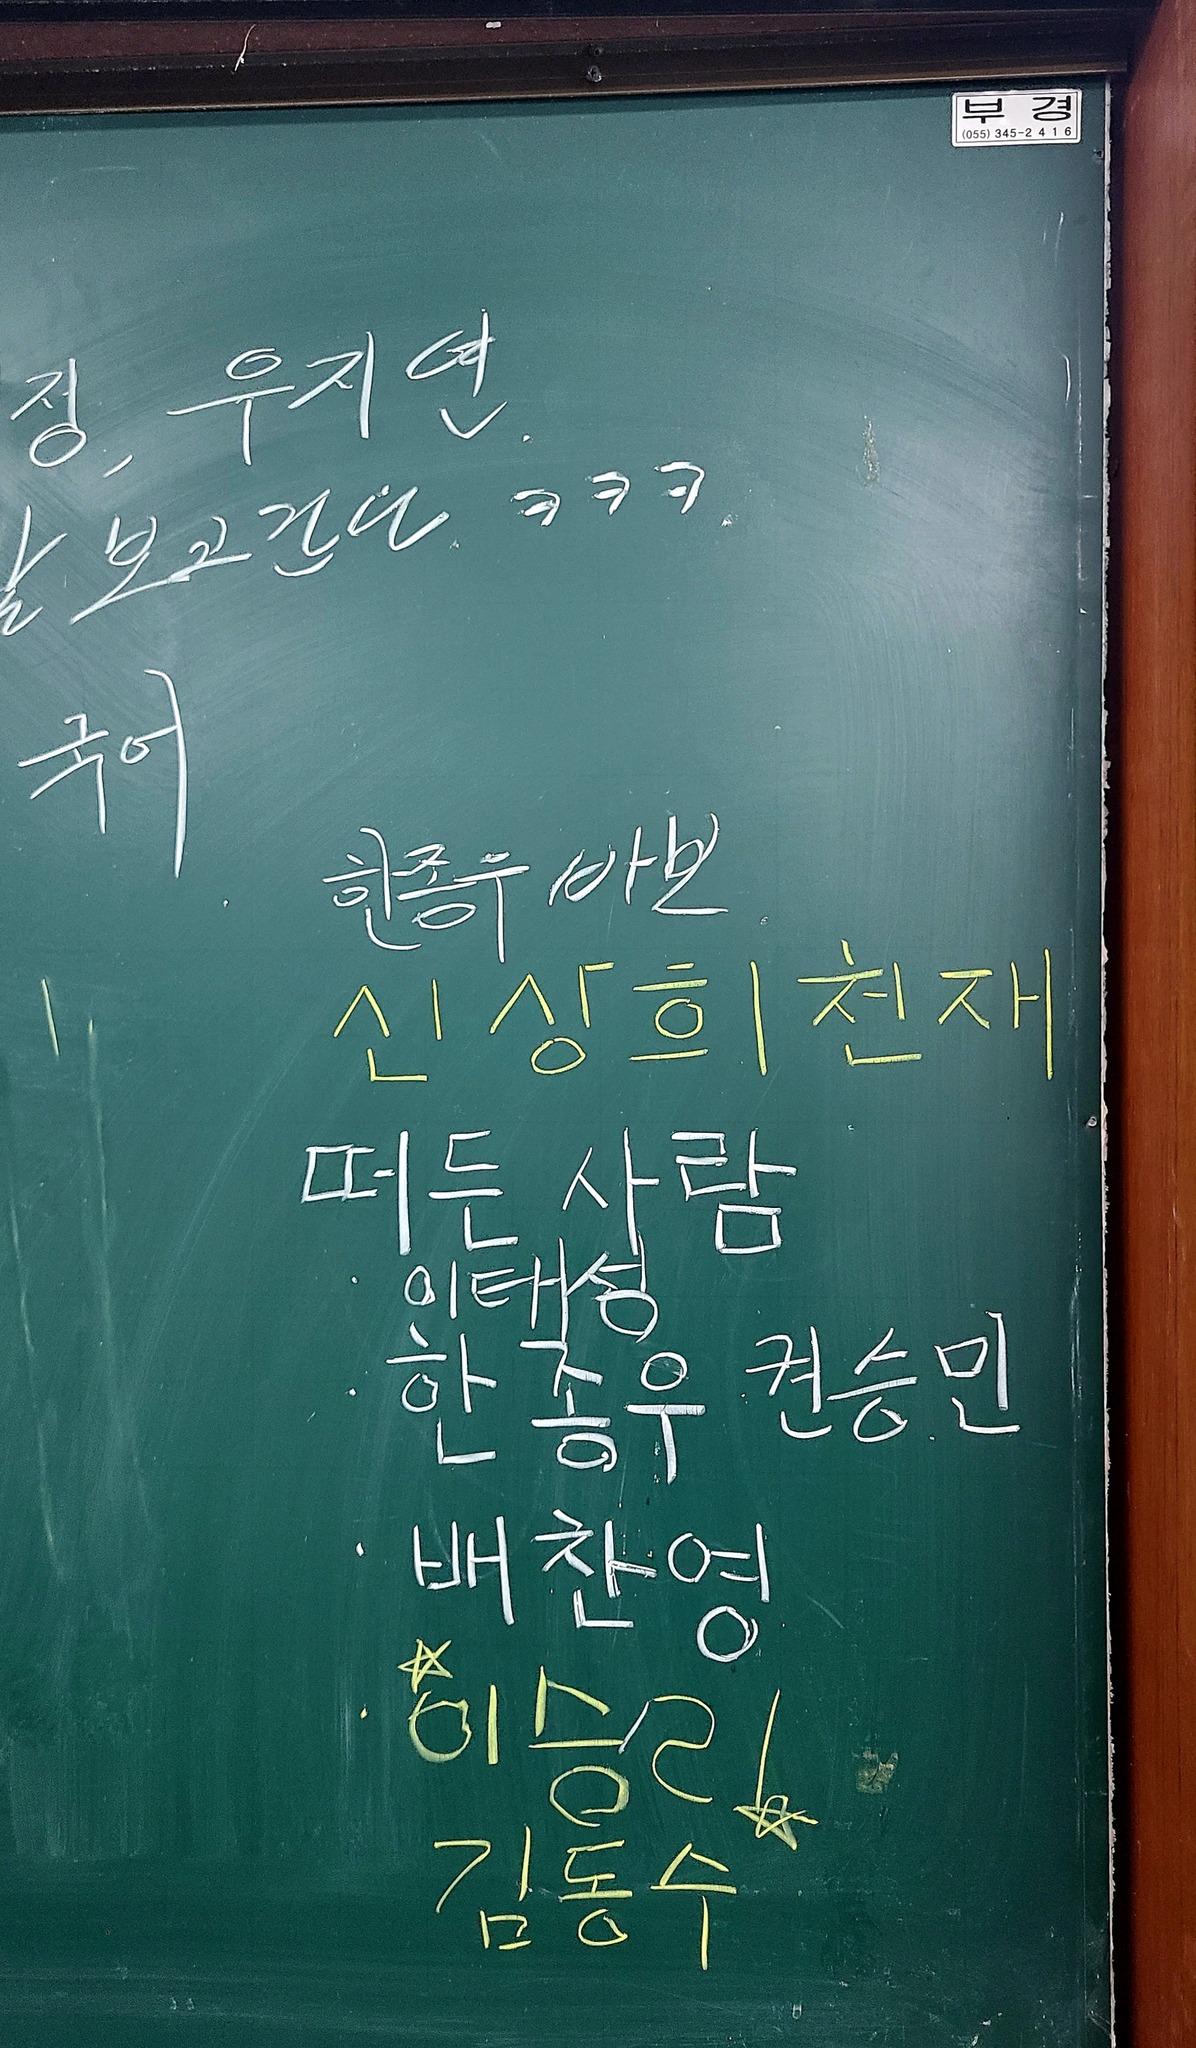 부 경
(055) 345-2416
정, 우지연.
잘 보고간다. ㅋㅋㅋ.
국어
한종우 바보.
신상희 천재
떠든 사람
· 이태성
· 한종우 권승민
· 배찬영
· 이승리
김동수